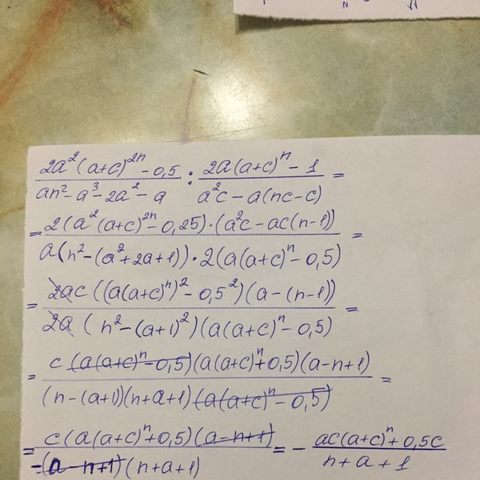 2a²(a+c)²ⁿ-0,5 / an²-a³-2a²-a : 2a(a+c)ⁿ-1 / a²c-a(nc-c) =
= 2(a²(a+c)²ⁿ-0,25)·(a²c-ac(n-1)) / a(n²-(a²+2a+1))·2(a(a+c)ⁿ-0,5) =
= 2ac((a(a+c)ⁿ)²-0,5²)(a-(n-1)) / 2a(n²-(a+1)²)(a(a+c)ⁿ-0,5) =
= c(a(a+c)ⁿ-0,5)(a(a+c)ⁿ+0,5)(a-n+1) / (n-(a+1))(n+a+1)(a(a+c)ⁿ-0,5) =
= c(a(a+c)ⁿ+0,5)(a-n+1) / -(a-n+1)(n+a+1) = - ac(a+c)ⁿ+0,5c / n+a+1